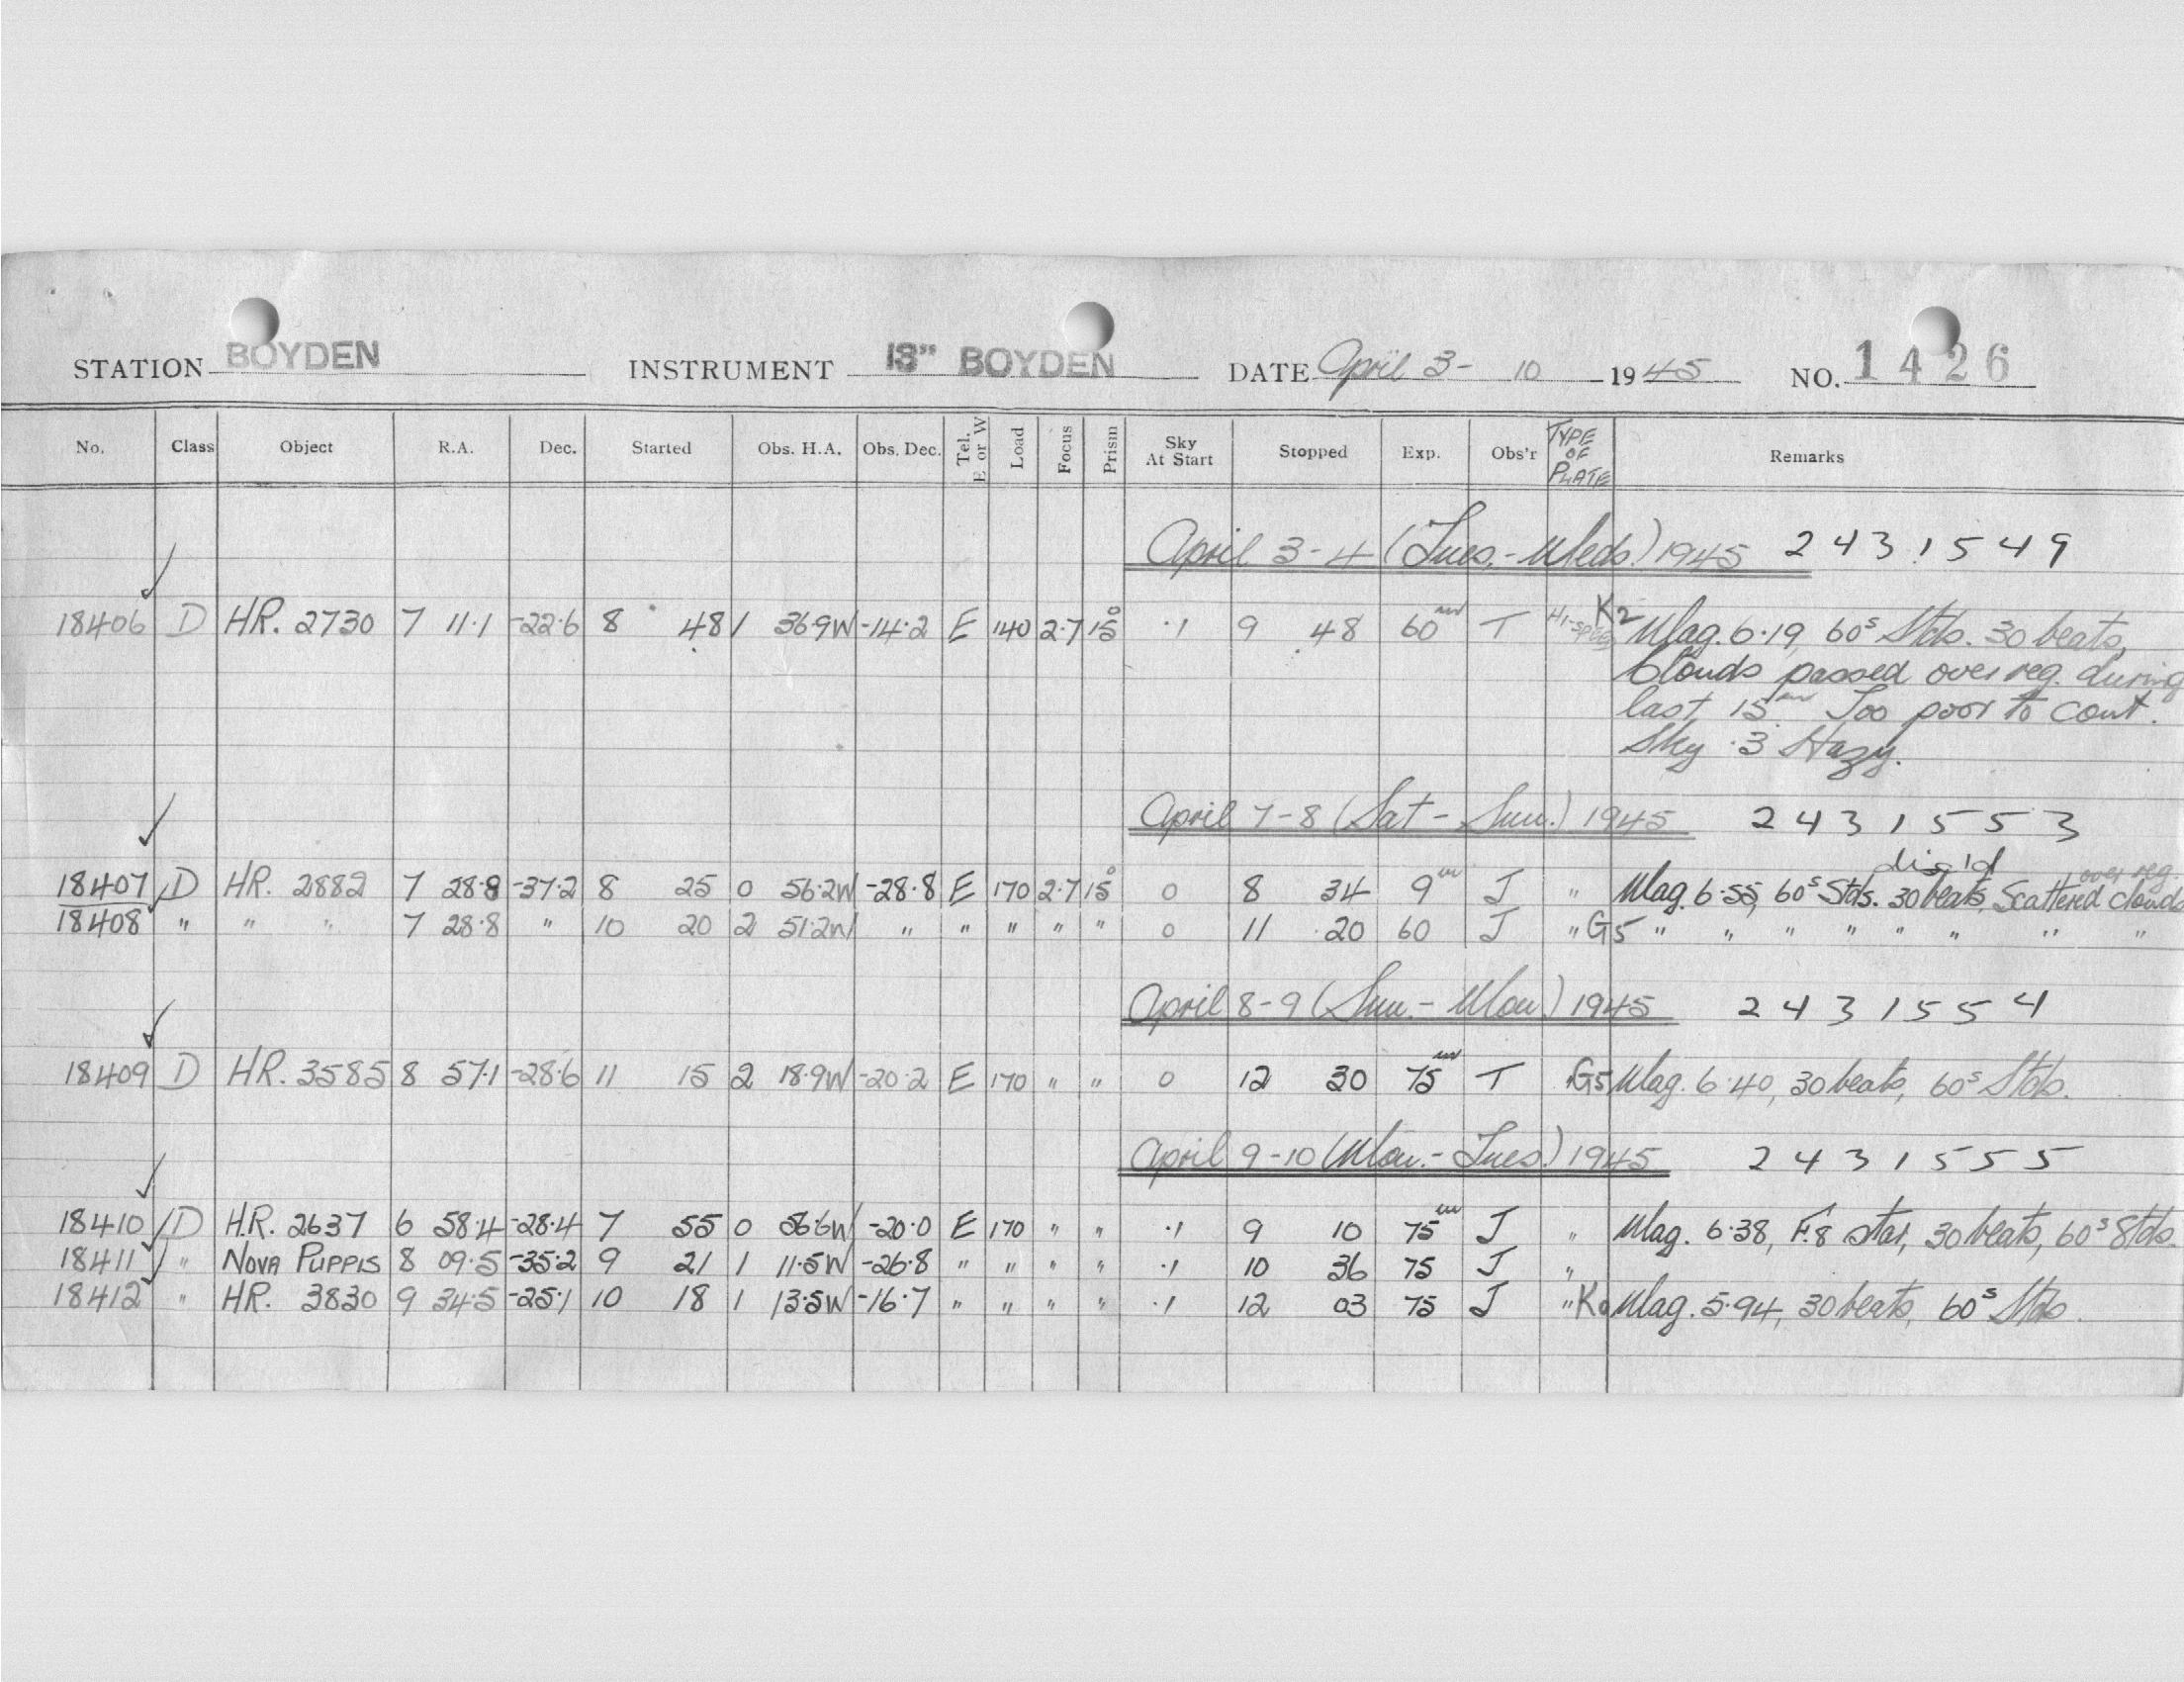 STATION BOYDEN INSTRUMENT 13" BOYDEN DATE April 3- 10 1945 NO. 1426
No. Class Object R.A. Dec. Started Obs. H.A. Obs. Dec. Tel. E or W Load Focus Prism Sky At Start Stopped Exp. Obs'r TYPE OF PLATE Remarks
April 3-4 (Tues.-Weds.) 1945 2431549
18406 D HR. 2730 7 11.1 -22.6 8 48 1 36.9W -14.2 E 140 2.7 15° .1 9 48 60m T Hi-speed K2 Mag. 6.19, 60s Stds. 30 beats,
Clouds passed over reg. during
last 15m. Too poor to cont.
Sky .3 Hazy.
April 7-8 (Sat - Sun.) 1945 2431553
dis'd over reg.
18407 D HR. 2882 7 28.8 -37.2 8 25 0 56.2W -28.8 E 170 2.7 15° 0 8 34 9m J " Mag. 6.55, 60s Stds. 30 beats, Scattered clouds
18408 " " " 7 28.8 " 10 20 2 51.2W " " " " " 0 11 20 60 J " G5 " " " " " " " "
April 8-9 (Sun.- Mon.) 1945 2431554
18409 D HR. 3585 8 57.1 -28.6 11 15 2 18.9W -20.2 E 170 " " 0 12 30 75m T G5 Mag. 6.40, 30 beats, 60s Stds.
April 9-10 (Mon.- Tues.) 1945 2431555
18410 D H.R. 2637 6 58.4 -28.4 7 55 0 56.6W -20.0 E 170 " " .1 9 10 75m J " Mag. 6.38, F8 star, 30 beats, 60s Stds.
18411 " NOVA PUPPIS 8 09.5 -35.2 9 21 1 11.5W -26.8 " " " " .1 10 36 75 J "
18412 " HR. 3830 9 34.5 -25.1 10 18 1 13.5W -16.7 " " " " .1 12 03 75 J " K0 Mag. 5.94, 30 beats, 60s Stds.